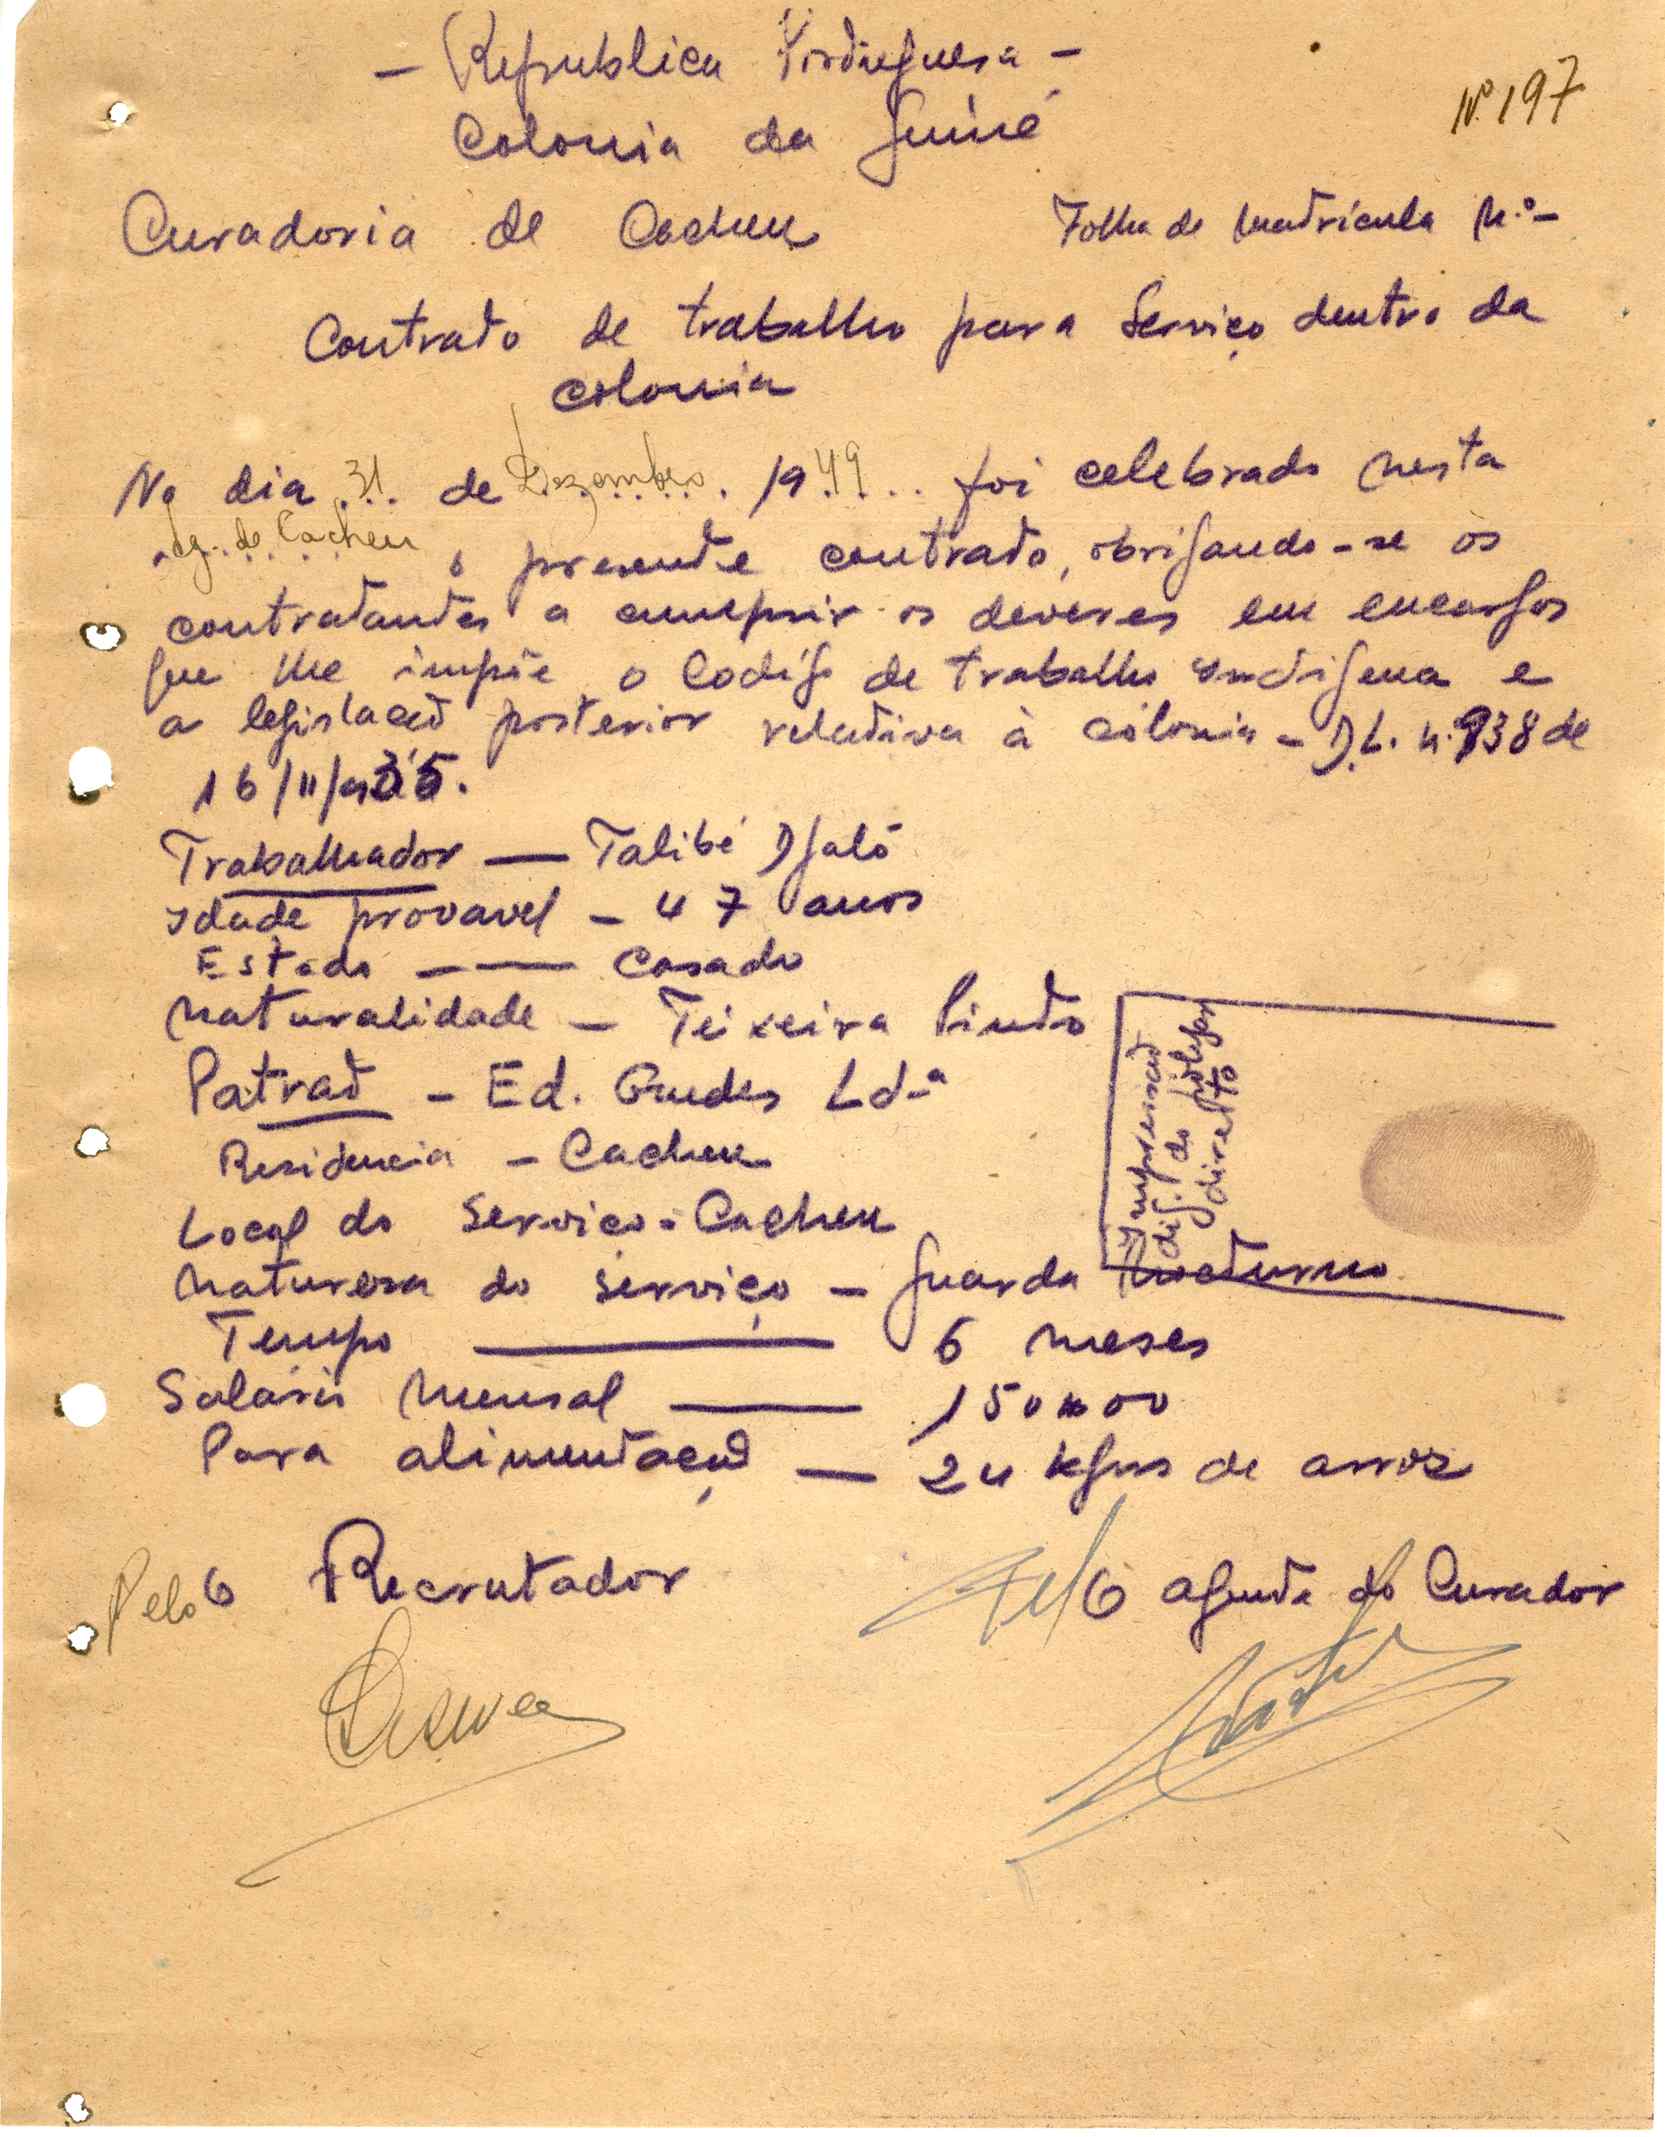 - Republica Portuguesa -
Nº 197
Colonia da Guiné
Curadoria de Cacheu
Folha de matrícula N.º -
Contrato de trabalho para Serviço dentro da
colonia
No dia 31 de Dezembro 1949 foi celebrado nesta
de Cacheu o presente contrato, obrigando-se os
contratantes a cumprir os deveres em encargos
que lhe impõe o Codigo de trabalho indigena e
a legislacaõ posterior relativa à cólonia - D.L. n. 938 de
16/11/935.
Trabalhador — Talibé Djaló
Idade provavel - 47 anos
Estado — Casado
Naturalidade - Teixeira Pinto
Patraõ - Ed. Guedes Ld.ª
Residencia - Cacheu
Local do Serviço - Cacheu
Impressaõ
dig. do polegar
direito
Natureza do serviço - Guarda Nocturno
Tempo — 6 meses
Salário Mensal — 150$00
Para alimentaçaõ — 24 kgms de arroz
Pelo O Recrutador
Pel O agente do Curador